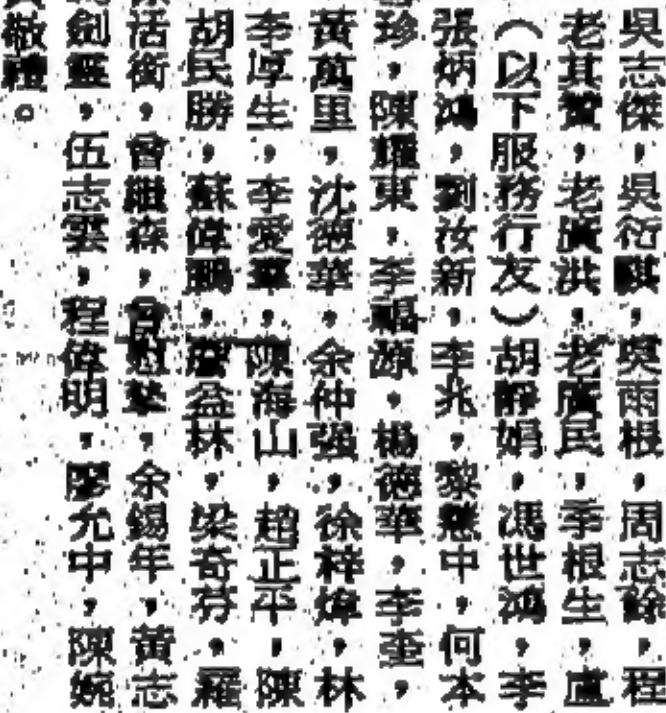 吳志傑,吳衍騏,吳雨根,周志幹,程
老其贊,老廣洪,老廣民,季根生,盧
(以下服務行友)胡靜娟,馮世鴻,李
張炳鴻,劉汝新,李兆,黎懋中,何本
珍,陳耀東,李福源,楊德華,李奎,
黃萬里,沈德華,余仲强,徐梓煒,林
李厚生,李愛華,陳海山,趙正平,陳
胡民勝,蘇偉鵬,益林,梁奇芬,羅
活衡,曾繼森,余錫年,黃志
劍靈,伍志雲,程偉明,廖允中,陳婉
敬禮。